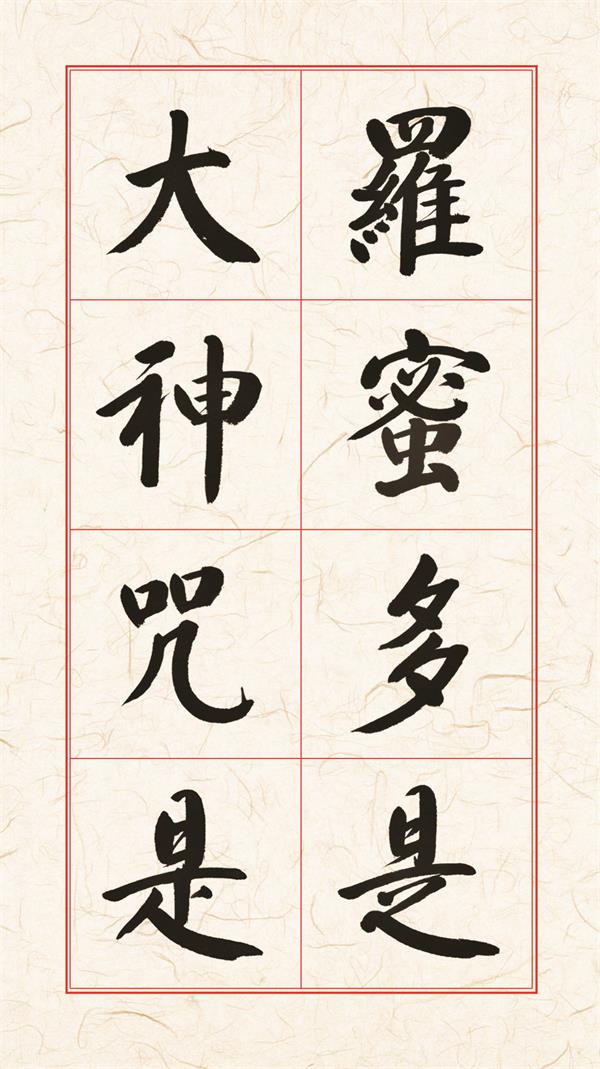 羅蜜多是
大神咒是